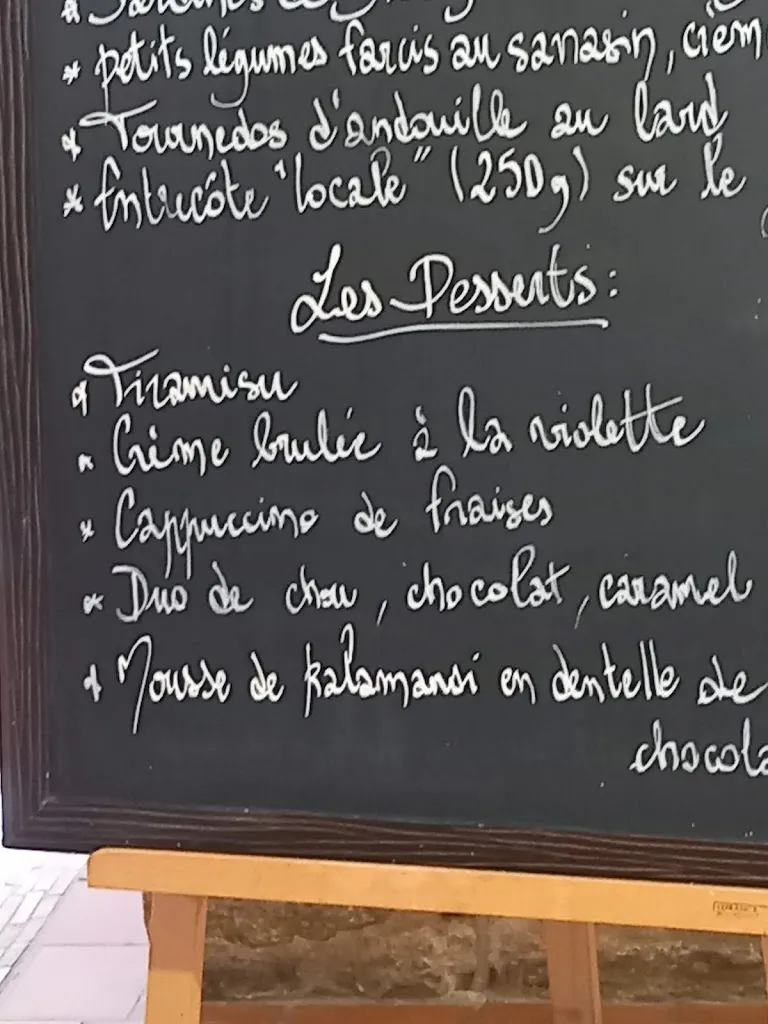 * petits légumes farcis au sarrasin, crèm
* Tournedos d'andouille au lard
* Entrecôte "locale" (250g) sur le
Les Desserts:
* Tiramisu
* Crème brulée à la violette
* Cappuccino de fraises
* Duo de chou, chocolat, caramel
* Mousse de kalamansi en dentelle de
chocola